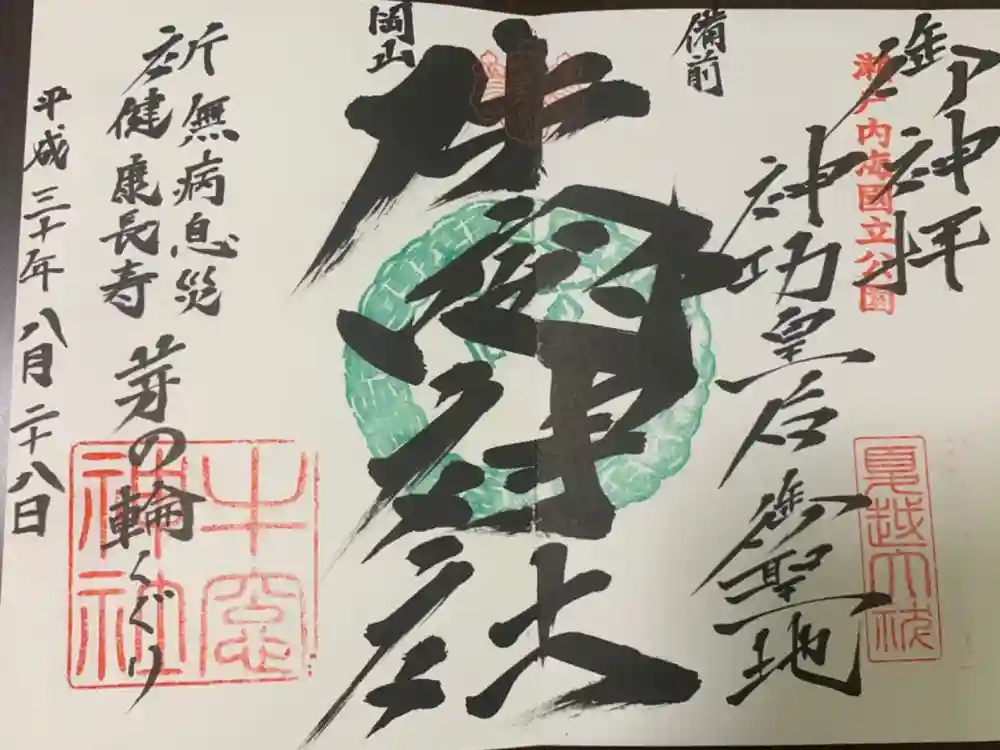 御神拝
瀬戸内海国立公園
備前
神功皇后御聖地
夏越大祓
岡山
牛窓神社
祈
無病息災
健康長寿
芽の輪くぐり
牛窓
神社
平成三十年八月二十八日